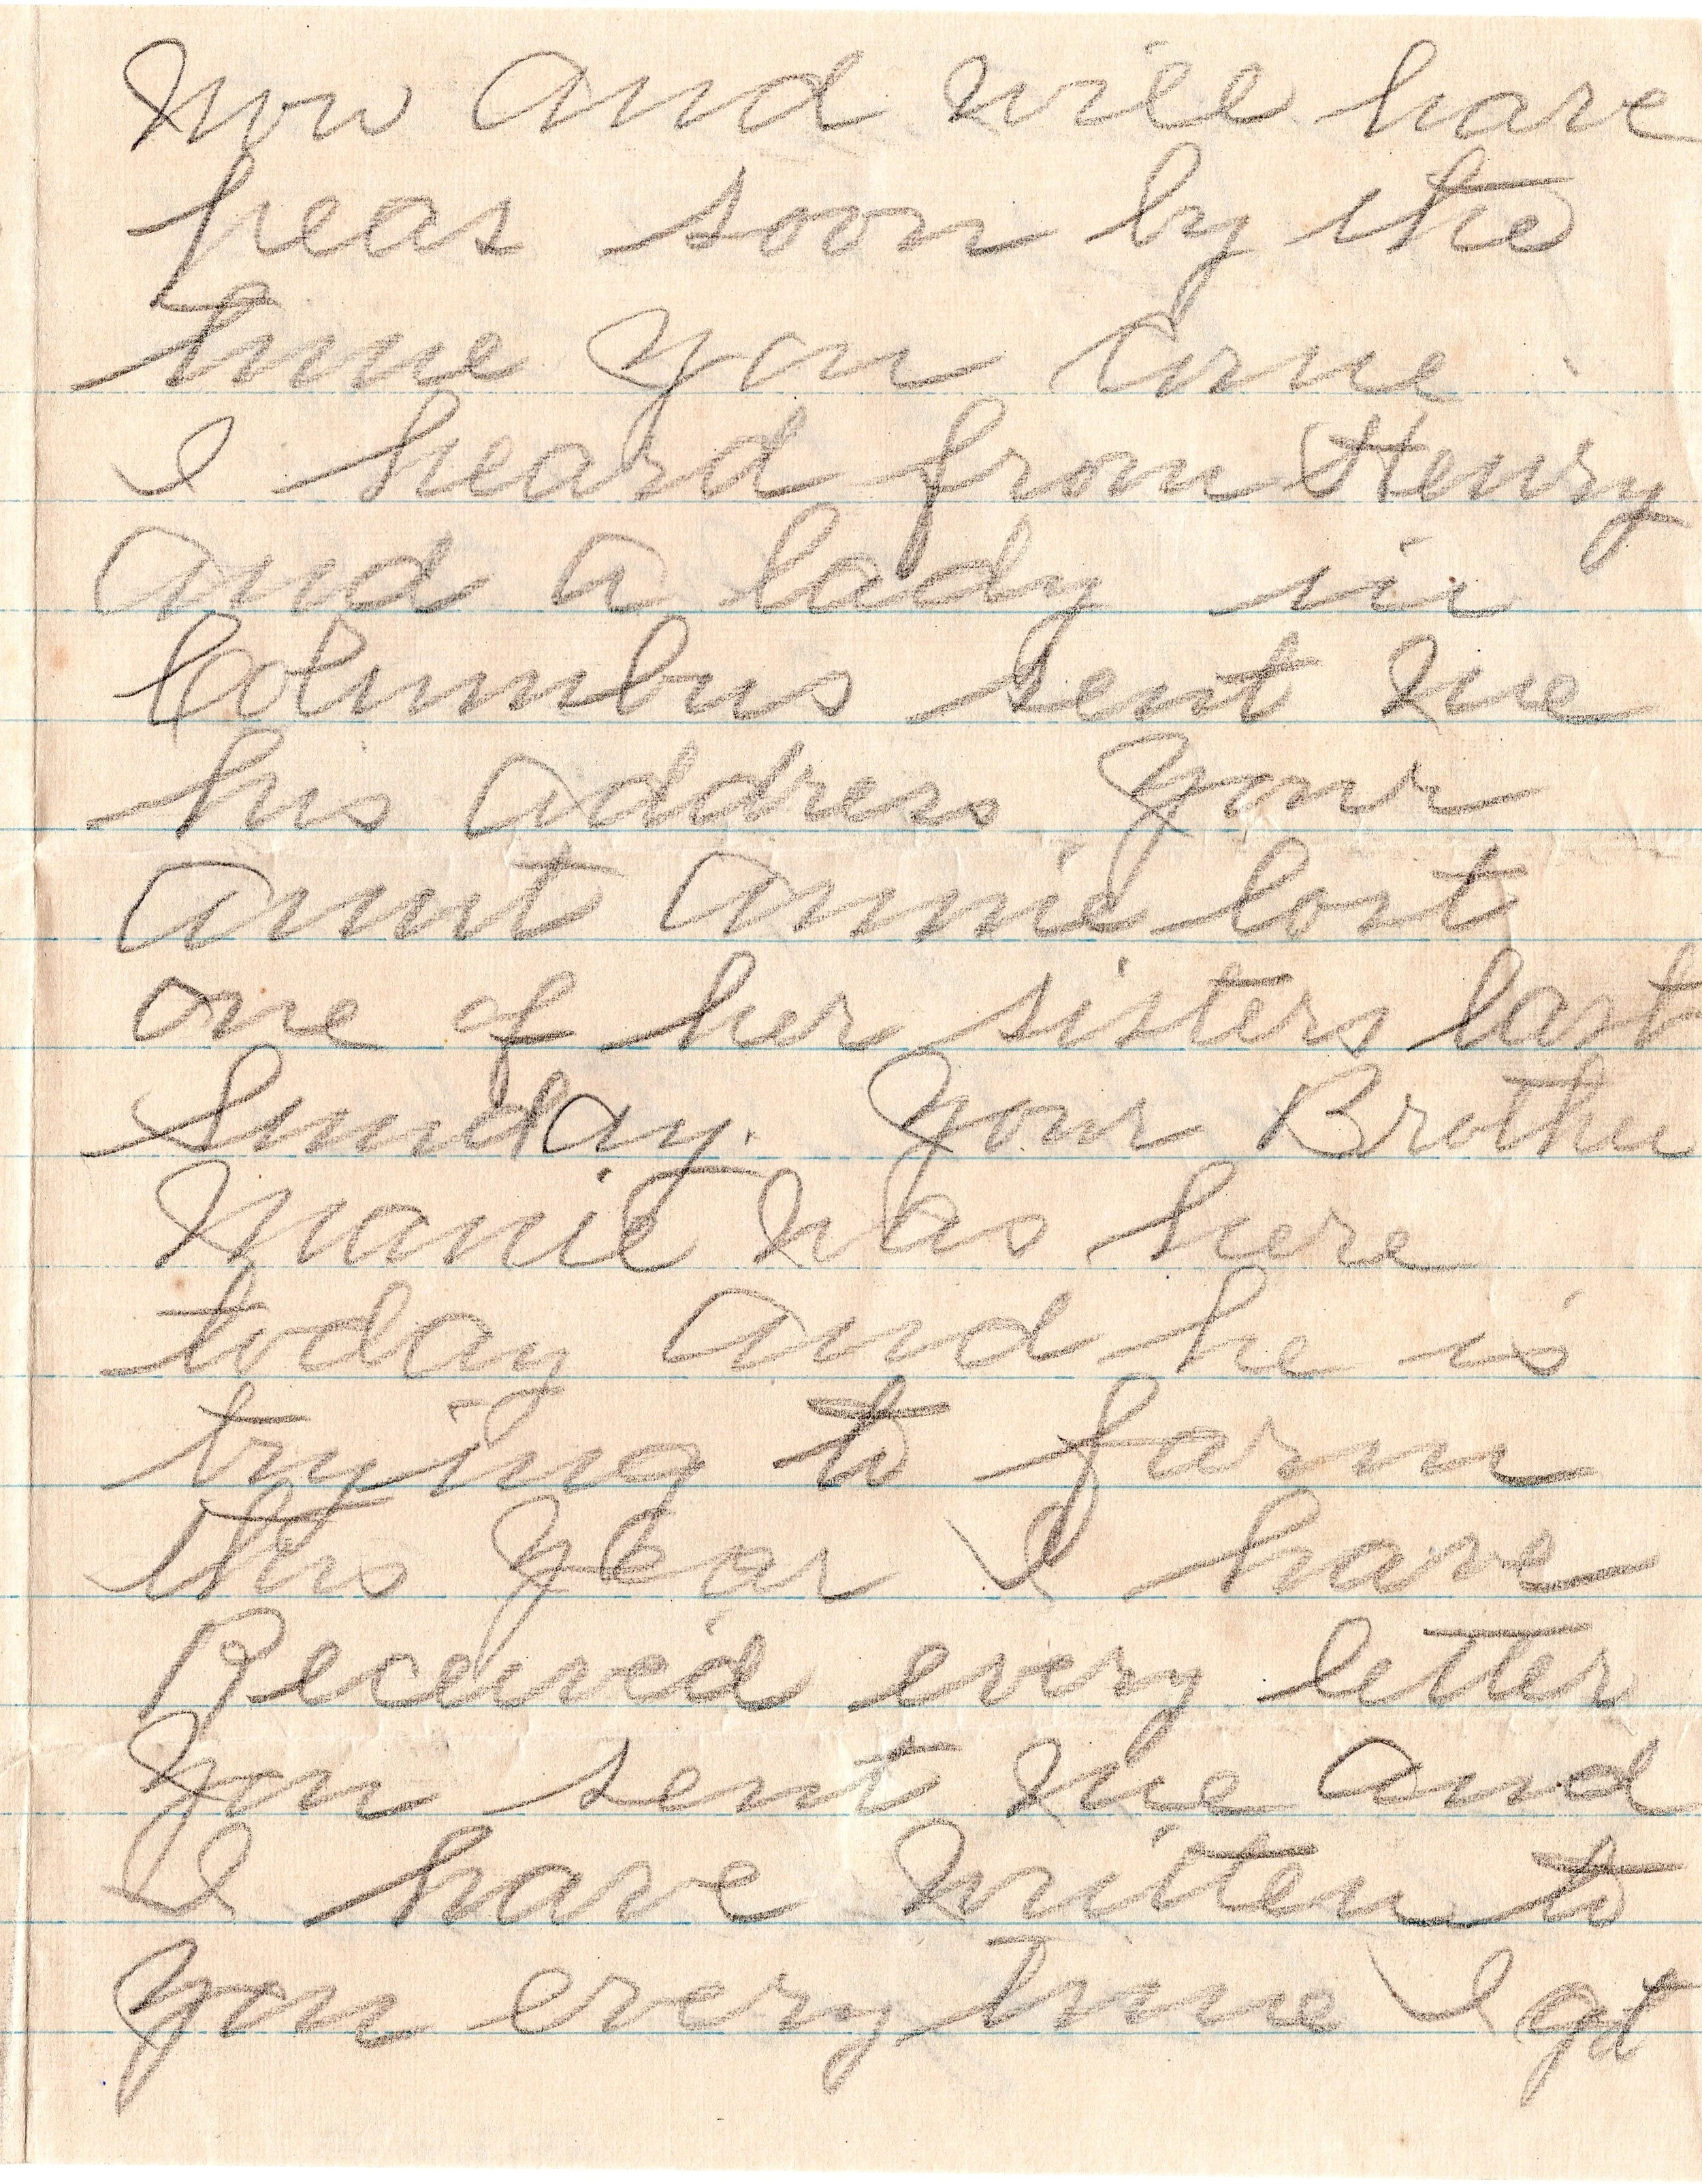 now and will have
peas soon by the
time you come
I heard from Henry
and a lady in
Columbus sent me
his address your
aunt annie lost
one of her sisters last
Sunday. Your Brother
Manie was here
today and he is
trying to farm
this year I have
Received every letter
you sent me and
I have written to
you every time I got